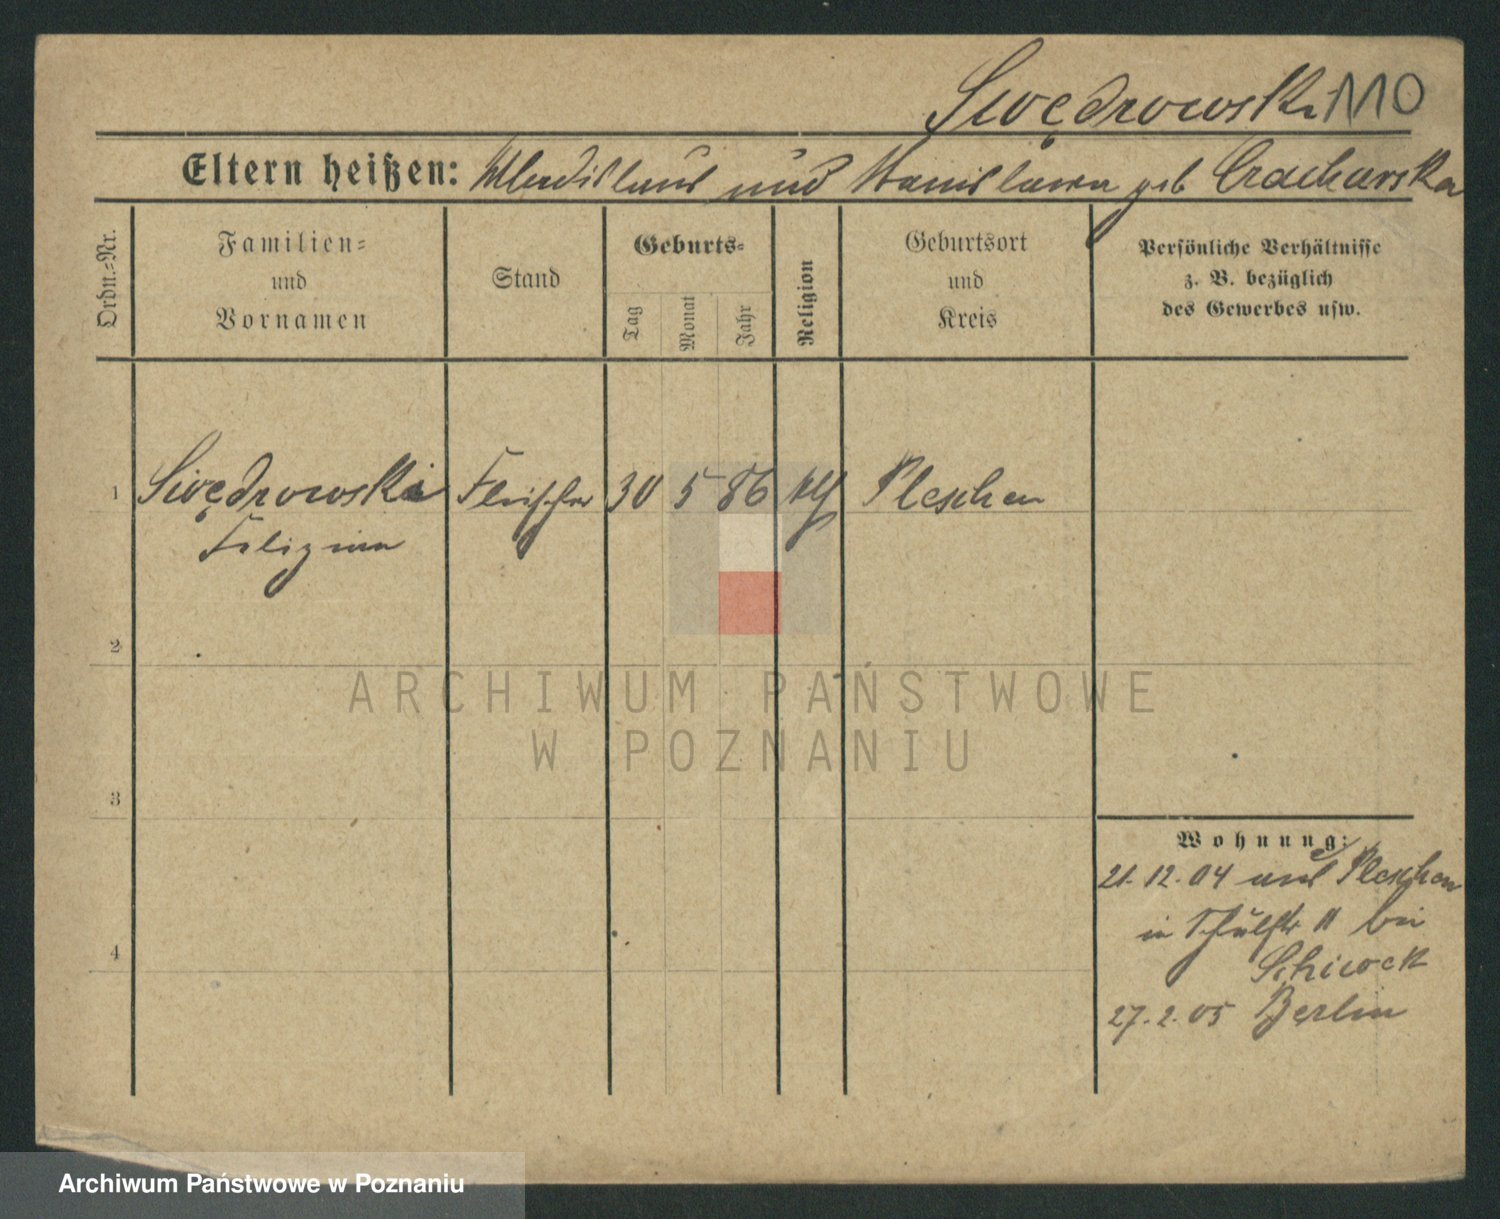 Swędrowski 110
Eltern heißen: Wladislaus und Stanislawa geb Crachurska
Ordn.-Nr.
Familien-
und
Vornamen
Stand
Geburts-
Tag
Monat
Jahr
Religion
Geburtsort
und
Kreis
Persönliche Verhältnisse
z. B. bezüglich
des Gewerbes usw.
1 Swędrowski Fleischer 30 5 86 kth Pleschen
Feligian
2
3
4
Wohnung:
21.12.04 aus Pleschen
in Schulstr 11 bei
Schiwek
27.2.05 Berlin
ARCHIWUM PAŃSTWOWE
W POZNANIU
Archiwum Państwowe w Poznaniu